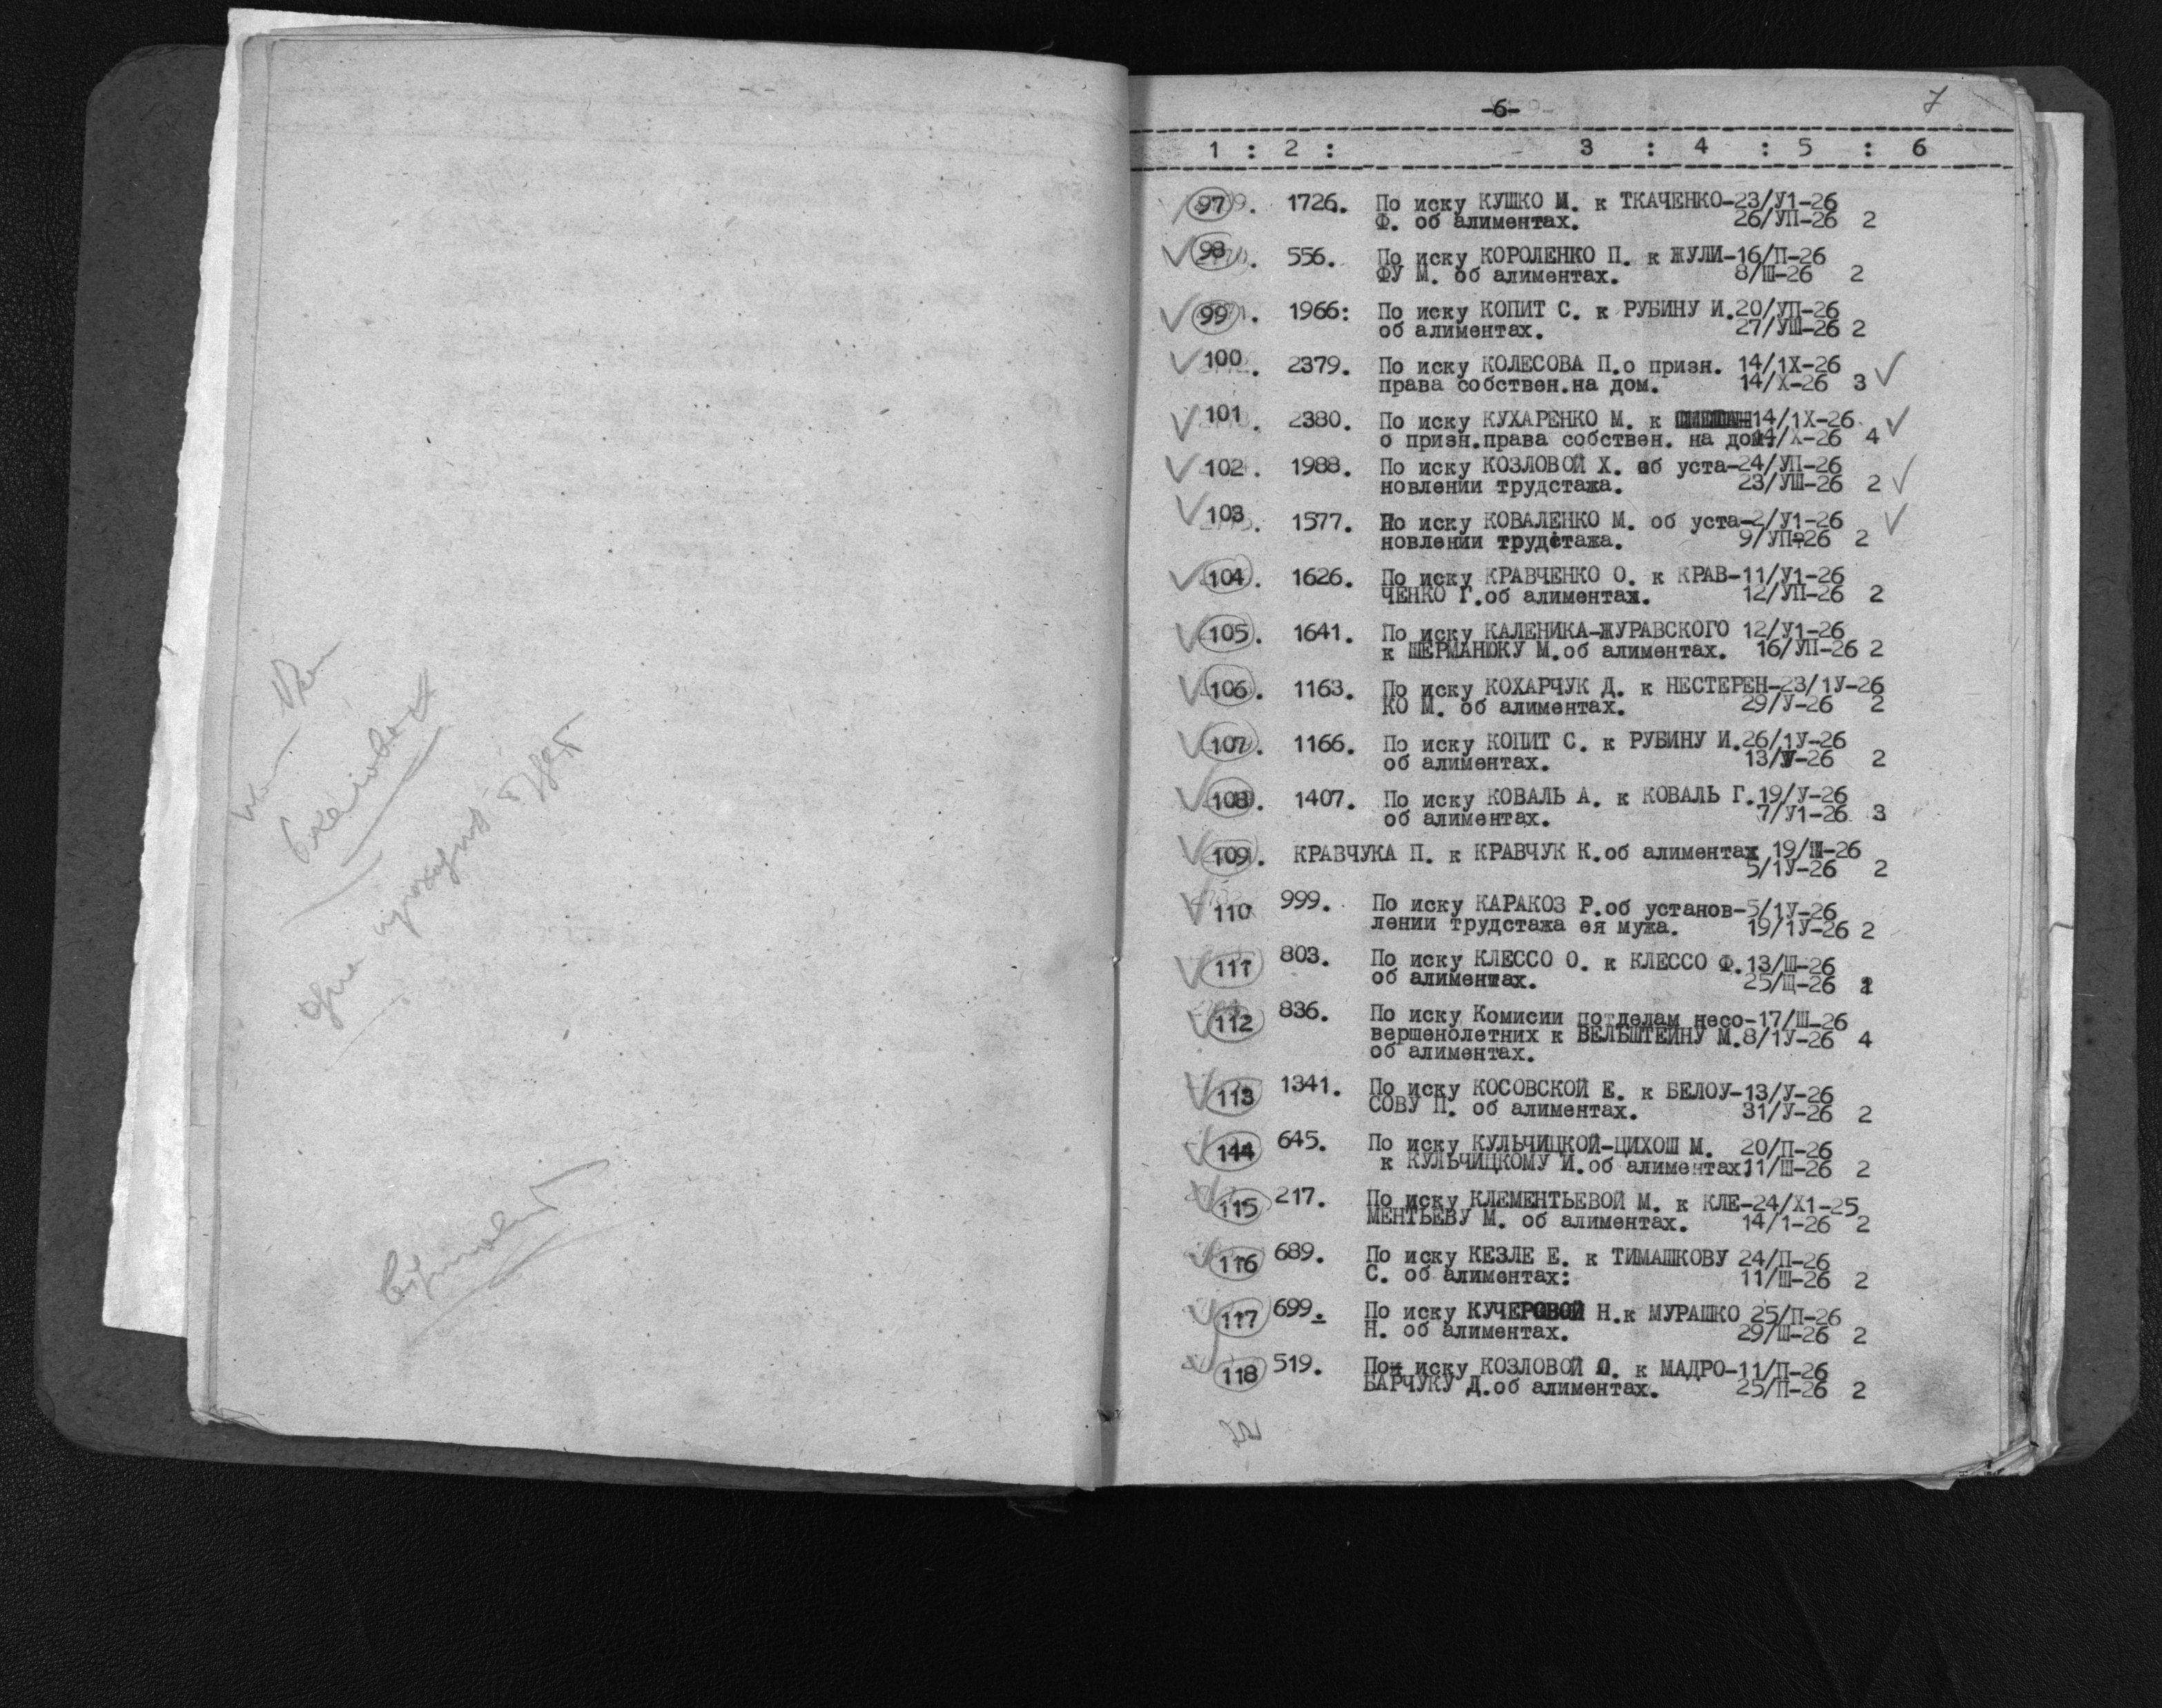 -6-
7
1 : 2 : 3 : 4 : 5 : 6
97 1726. По иску КУШКО М. к ТКАЧЕНКО-23/У1-26
Ф. об алиментах. 26/УП-26 2
98 556. По иску КОРОЛЕНКО П. к ЖУЛИ-16/П-26
ФУ М. об алиментах. 8/Ш-26 2
99 1966: По иску КОПИТ С. к РУБИНУ И.20/УП-26
об алиментах. 27/УШ-26 2
100. 2379. По иску КОЛЕСОВА П.о призн. 14/1Х-26
права собствен.на дом. 14/Х-26 3
101. 2380. По иску КУХАРЕНКО М. к 14/1Х-26
о призн.права собствен. на дом14/Х-26 4
102. 1988. По иску КОЗЛОВОЙ Х. об уста-24/УП-26
новлении трудстажа. 23/УШ-26 2
103. 1577. По иску КОВАЛЕНКО М. об уста-2/У1-26
новлении трудстажа. 9/УП-26 2
104. 1626. По иску КРАВЧЕНКО О. к КРАВ-11/У1-26
ЧЕНКО Г.об алиментах. 12/УП-26 2
105. 1641. По иску КАЛЕНИКА-ЖУРАВСКОГО 12/У1-26
к ШЕРМАНЮКУ М.об алиментах. 16/УП-26 2
106. 1163. По иску КОХАРЧУК Д. к НЕСТЕРЕН-23/1У-26
КО М. об алиментах. 29/У-26 2
107. 1166. По иску КОПИТ С. к РУБИНУ И.26/1У-26
об алиментах. 13/У-26 2
108. 1407. По иску КОВАЛЬ А. к КОВАЛЬ Г.19/У-26
об алиментах. 7/У1-26 3
109. КРАВЧУКА П. к КРАВЧУК К.об алиментах 19/Ш-26
5/1У-26 2
110 999. По иску КАРАКОЗ Р.об установ-5/1У-26
лении трудстажа ея мужа. 19/1У-26 2
111 803. По иску КЛЕССО О. к КЛЕССО Ф.13/Ш-26
об алиментах. 25/Щ-26
112 836. По иску Комисии по делам несо-17/Ш-26
вершенолетних к ВЕЛЬШТЕЙНУ М.8/1У-26 4
об алиментах.
113 1341. По иску КОСОВСКОЙ Е. к БЕЛОУ-13/У-26
СОВУ П. об алиментах. 31/У-26 2
114 645. По иску КУЛЬЧИЦКОЙ-ЦИХОШ М. 20/П-26
к КУЛЬЧИЦКОМУ И.об алиментах.11/Ш-26 2
115 217. По иску КЛЕМЕНТЬЕВОЙ М. к КЛЕ-24/Х1-25
МЕНТЬЕВУ М. об алиментах. 14/1-26 2
116 689. По иску КЕЗЛЕ Е. к ТИМАШКОВУ 24/П-26
С. об алиментах: 11/Ш-26 2
117 699. По иску КУЧЕРОВОЙ Н.к МУРАШКО 25/П-26
Н. об алиментах. 29/Ш-26 2
118 519. По иску КОЗЛОВОЙ О. к МАДРО-11/П-26
БАРЧУКУ Д.об алиментах. 25/П-26 2